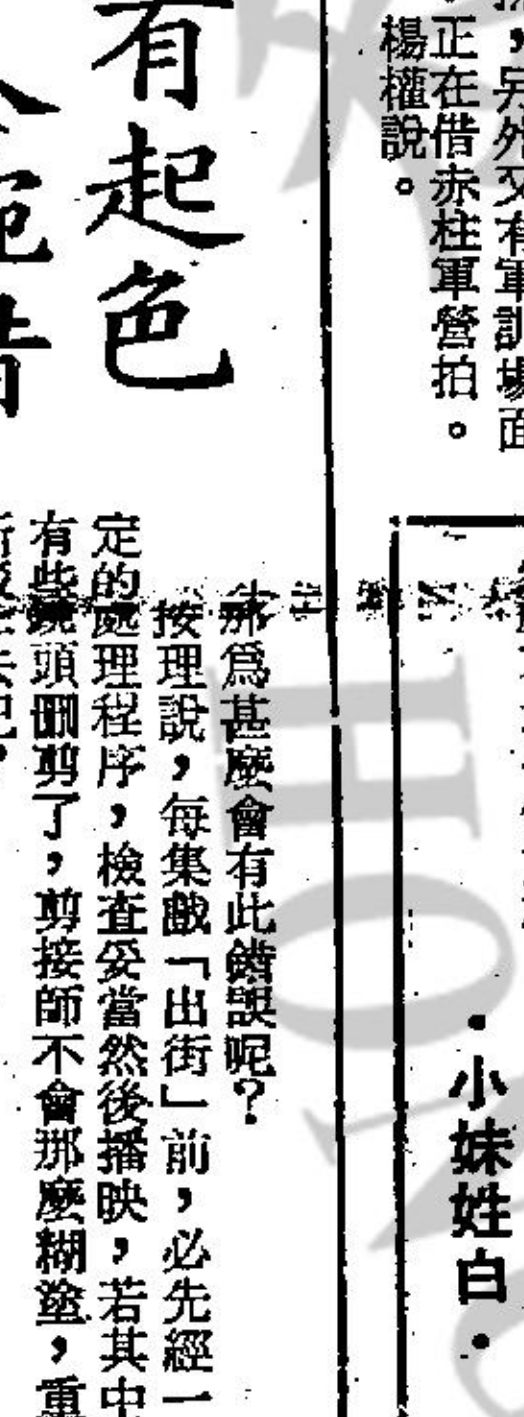 ，另外又有軍訓場面
正在借赤柱軍營拍。
楊權說。
有起色
•小妹姓白•
那為甚麼會有此錯誤呢？
按理說，每集戲「出街」前，必先經一
定的處理程序，檢查妥當然後播映，若其中
有些鏡頭刪剪了，剪接師不會那麼糊塗，重